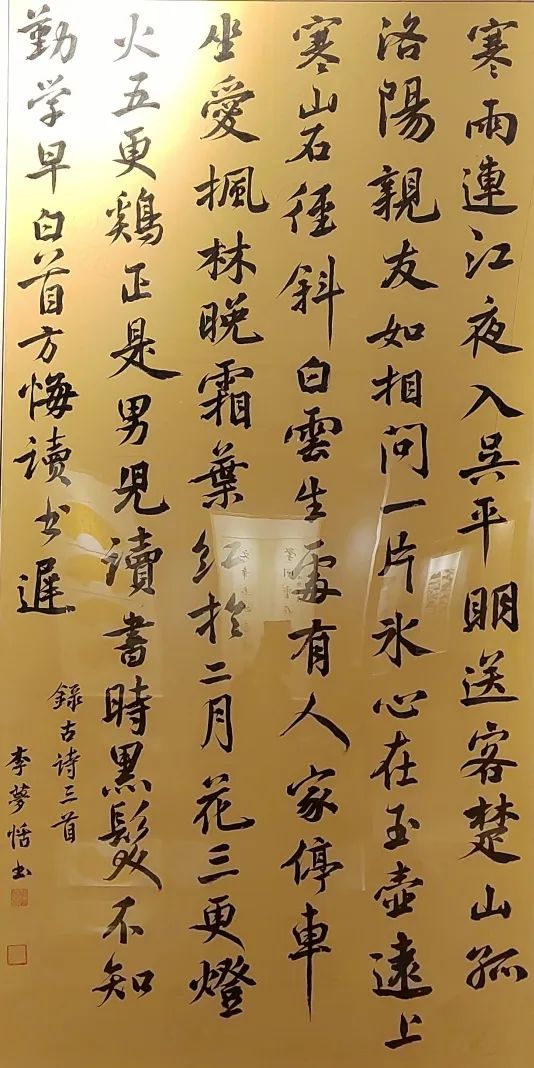 寒雨連江夜入吴平明送客楚山孤
洛陽親友如相问一片氷心在玉壺遠上
寒山石径斜白雲生處有人家停車
坐愛楓林晚霜葉红扵二月花三更燈
火五更鷄正是男児讀書時黑髮不知
勤学早白首方悔读书遲
録古诗三首
李夢恬书